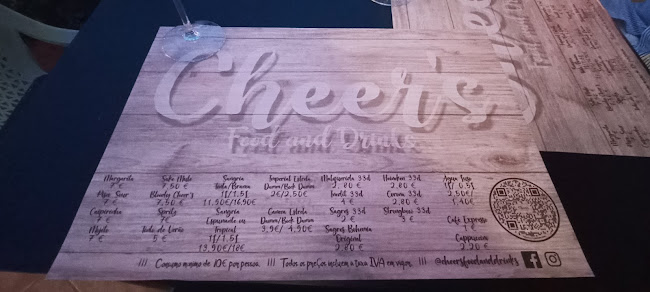 Cheer's
Food and Drinks
Margarita
7 €
Pisco Sour
7 €
Caipirinha
7 €
Mojito
7 €
7,50 €
Bloody Cheer's
7,50 €
Spritz
7 €
Tinto de Verão
5 €
Sangria
Tinta/Branca
1l/1.5l
11.50€/16,90€
Sangria
Espumante ou
Tropical
1l/1.5l
13,90€/18€
Imperial Estrela
Damm/Bock Damm
2€/2.50€
Caneca Estrela
Damm/Bock Damm
3,9€/ 4,90€
Malquerida 33cl
2,80 €
Inedit 33cl
4 €
Sagres 33cl
2 €
Sagres Bohemia
Original
2.80 €
Heineken 33cl
2,80 €
Corona 33cl
2,80 €
Strongbow 33cl
3 €
Agua Luso
1l/ 0.5l
2,50€/
1,40€
Café Expresso
1 €
Cappuccino
2,20 €
/// Consumo minimo de 10€ por pessoa. /// Todos os preços incluem a taxa IVA em vigor. /// @cheersfoodanddrinks